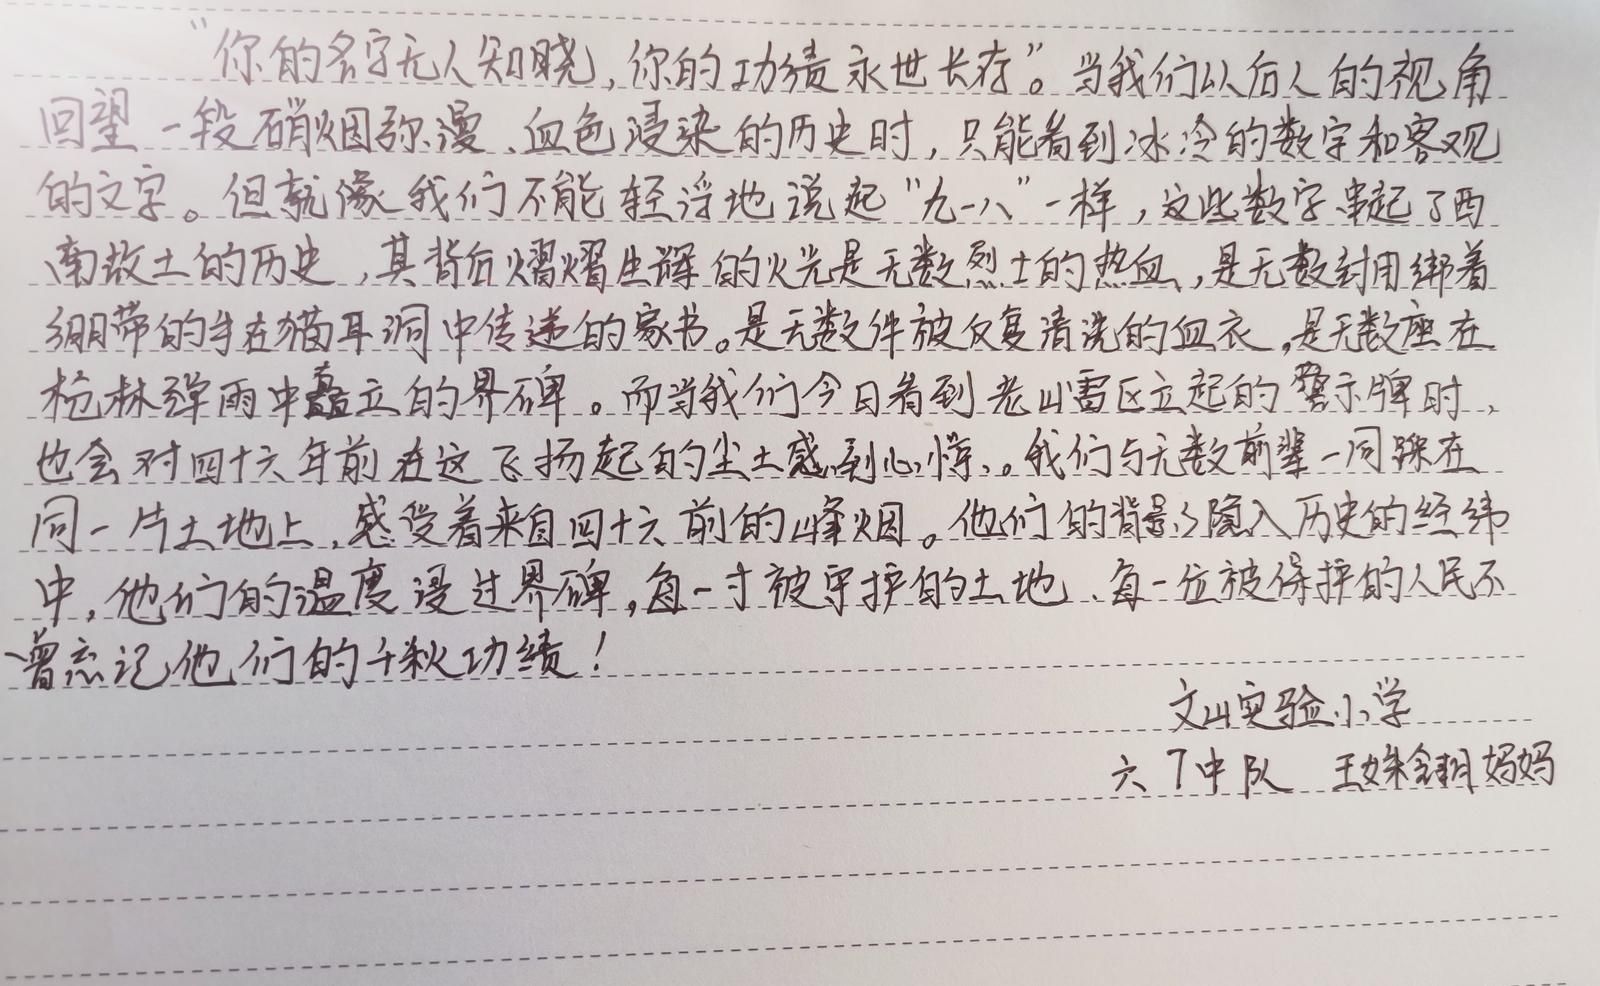 “你的名字无人知晓，你的功绩永世长存”。当我们以后人的视角
回望一段硝烟弥漫、血色浸染的历史时，只能看到冰冷的数字和客观
的文字。但就像我们不能轻浮地说起“九一八”一样，这些数字串起了西
南故土的历史，其背后熠熠生辉的火光是无数烈士的热血，是无数封用绑着
绷带的手在猫耳洞中传递的家书。是无数件被反复清洗的血衣，是无数座在
枪林弹雨中矗立的界碑。而当我们今日看到老山雷区立起的警示牌时，
也会对四十六年前在这飞扬起的尘土感到心悸。我们与无数前辈一同踩在
同一片土地上，感受着来自四十六前的烽烟。他们的背影隐入历史的经纬
中，他们的温度漫过界碑，每一寸被守护的土地、每一位被保护的人民不
曾忘记他们的千秋功绩！
文山实验小学
六7中队 王姝翎妈妈